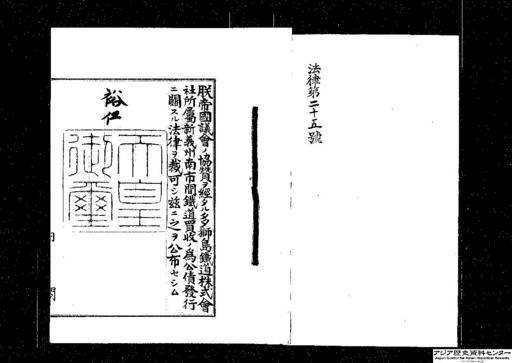 法律第二十五號
朕帝國議會ノ協贊ヲ經タル多獅島鐵道株式會
社所屬新義州南市間鐵道買收ノ爲公債發行
ニ關スル法律ヲ裁可シ玆ニ之ヲ公布セシム
裕仁
天皇御璽
内 閣
アジア歴史資料センター
Japan Center for Asian Historical Records